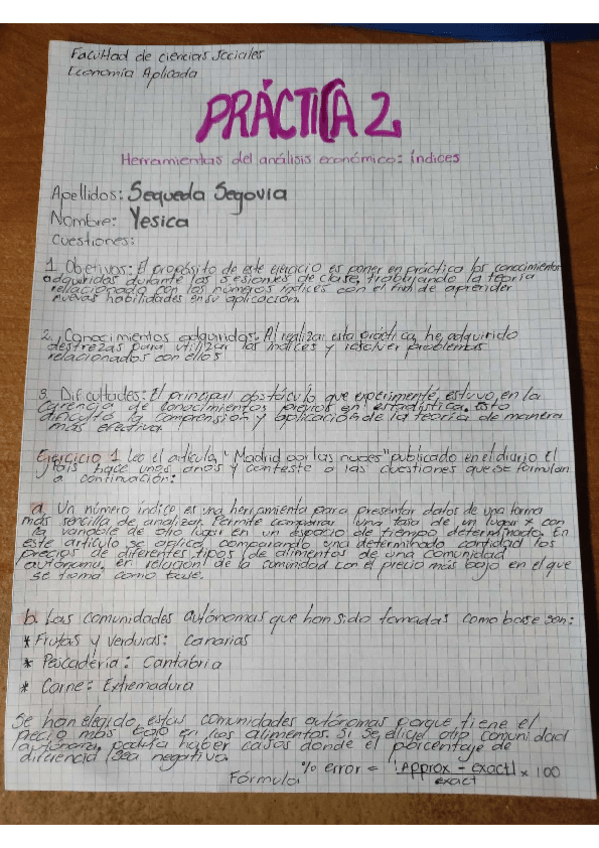 Facultad de ciencias sociales
Economía Aplicada
PRÁCTICA 2
Herramientas del análisis económico: índices
Apellidos: Sequeda Segovia
Nombre: Yesica
Cuestiones:
1. Objetivos: El propósito de este ejercicio es poner en práctica los conocimientos
adquiridos durante las sesiones de clase, trabajando la teoría
relacionada con los números índices con el fin de aprender
nuevas habilidades en su aplicación.
2. Conocimientos adquiridos: Al realizar esta práctica, he adquirido
destrezas para utilizar los índices y resolver problemas
relacionados con ellos.
3. Dificultades: El principal obstáculo que experimenté, estuvo en la
carencia de conocimientos previos en estadística. Esto
dificultó la comprensión y aplicación de la teoría de manera
más efectiva.
Ejercicio 1 Lea el artículo "Madrid por las nubes" publicado en el diario el
País hace unos años y conteste a las cuestiones que se formulan
a continuación:
a. Un número índice es una herramienta para presentar datos de una forma
más sencilla de analizar. Permite comparar una tasa de un lugar x con
la variable de otro lugar en un espacio de tiempo determinado. En
este artículo se aplica comparando una determinada cantidad los
precios de diferentes tipos de alimentos de una comunidad
autónoma, en relación de la comunidad con el precio más bajo en el que
se toma como base.
b. Las comunidades autónomas que han sido tomadas como base son:
* Frutas y verduras: Canarias
* Pescadería: Cantabria
* Carne: Extremadura
Se han elegido estas comunidades autónomas porque tiene el
precio más bajo en los alimentos. Si se elige otra comunidad
autónoma, podría haber casos donde el porcentaje de
diferencia sea negativa.
Fórmula % error = |Approx - exact| / exact x 100